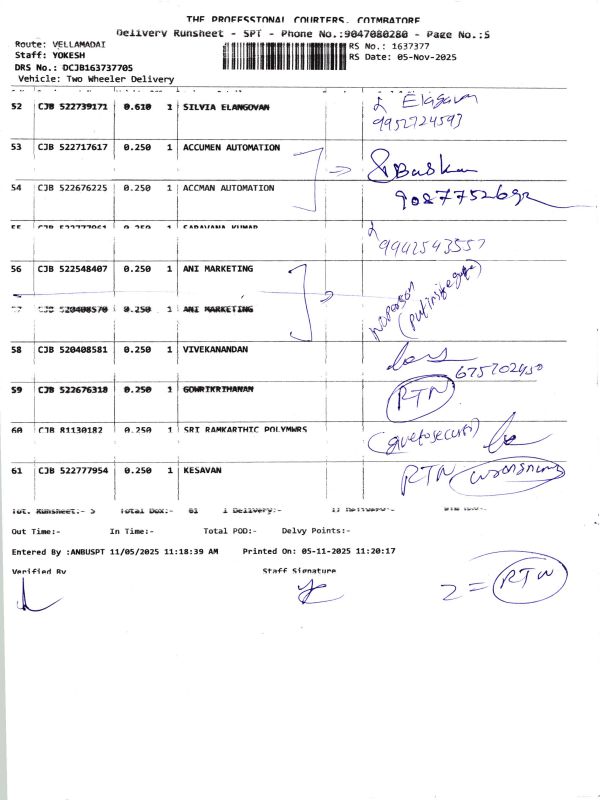 THE PROFESSIONAL COURIERS, COIMBATORE
Delivery Runsheet - SPT - Phone No.:9047080280 - Page No.:5
Route: VELLAMADAI
RS No.: 1637377
Staff: YOKESH
RS Date: 05-Nov-2025
DRS No.: DCJB163737705
Vehicle: Two Wheeler Delivery
52 CJB 522739171 0.610 1 SILVIA ELANGOVAN
9952724593
53 CJB 522717617 0.250 1 ACCUMEN AUTOMATION
Baskar
54 CJB 522676225 0.250 1 ACCMAN AUTOMATION
55 CJB 522777961 0.250 1 SARAVANA KUMAR
9942543557
56 CJB 522548407 0.250 1 ANI MARKETING
57 CJB 520408570 0.250 1 ANI MARKETING
58 CJB 520408581 0.250 1 VIVEKANANDAN
59 CJB 522676318 0.250 1 GOWRIKRIHANAN RTN
60 CJB 81130182 0.250 1 SRI RAMKARTHIC POLYMWRS
61 CJB 522777954 0.250 1 KESAVAN RTN
Out Time:- In Time:- Total POD:- Delvy Points:-
Entered By :ANBUSPT 11/05/2025 11:18:39 AM Printed On: 05-11-2025 11:20:17
Verified By Staff Signature
2 = RTN